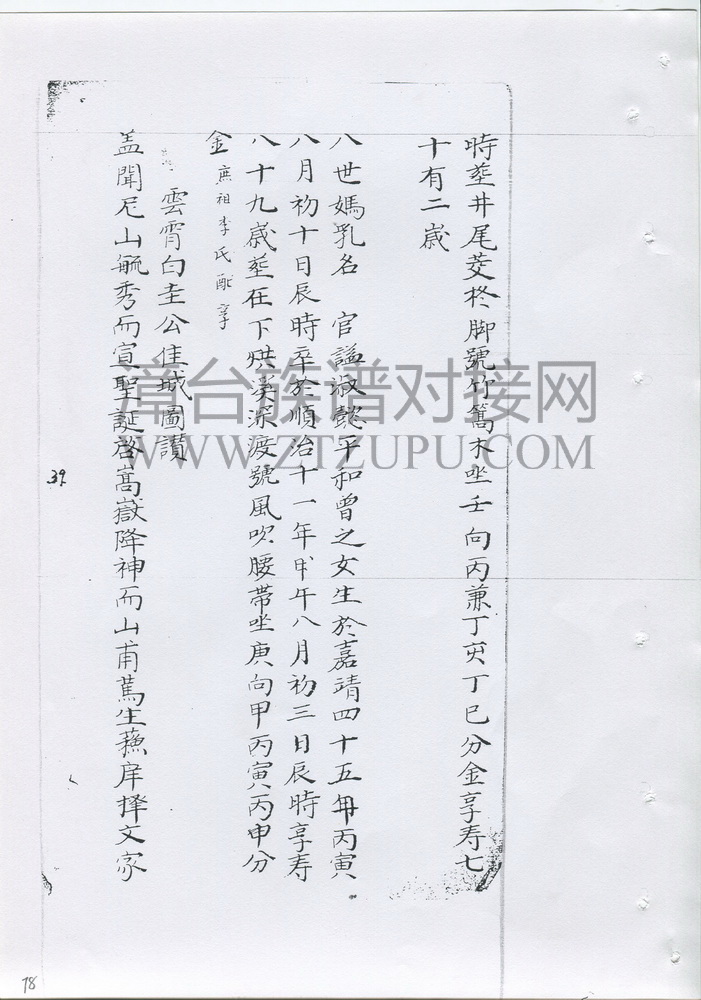 時葬井尾茭柊脚號竹篙木坐壬向丙兼丁亥丁巳分金享寿七
十有二歲
八世媽乳名 官謚淑懿平和曾之女生於嘉靖四十五年丙寅
八月初十日辰時卒於順治十一年甲午八月初三日辰時享寿
八十九歲葬在下烘溪深渡號風吹腰帶坐庚向甲丙寅丙申分
金 庶祖李氏配享
雲霄白圭公佳城圖讚
盖聞尼山毓秀而宣聖誕啓嵩嶽降神而山甫篤生蘓庠擇文家
39
78
章台族谱对接网
WWW.ZTZUPU.COM